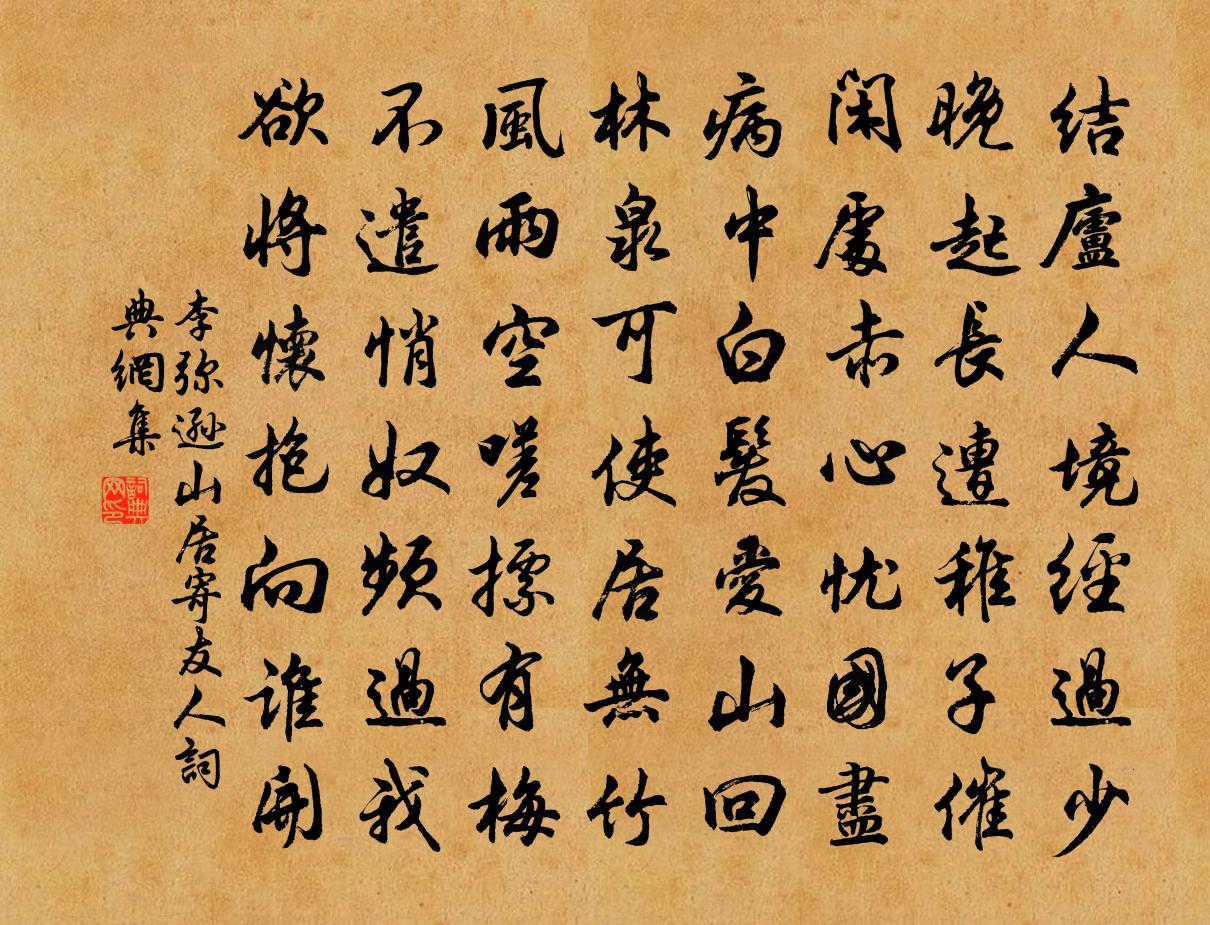 結廬人境經過少
晚起長遭稚子催
閑處赤心忧國盡
病中白髮愛山回
林泉可使居無竹
風雨空嗟摽有梅
不遣悄奴頻過我
欲將懷抱向誰開
李弥遜山居寄友人詞
典網集
詞典
网印